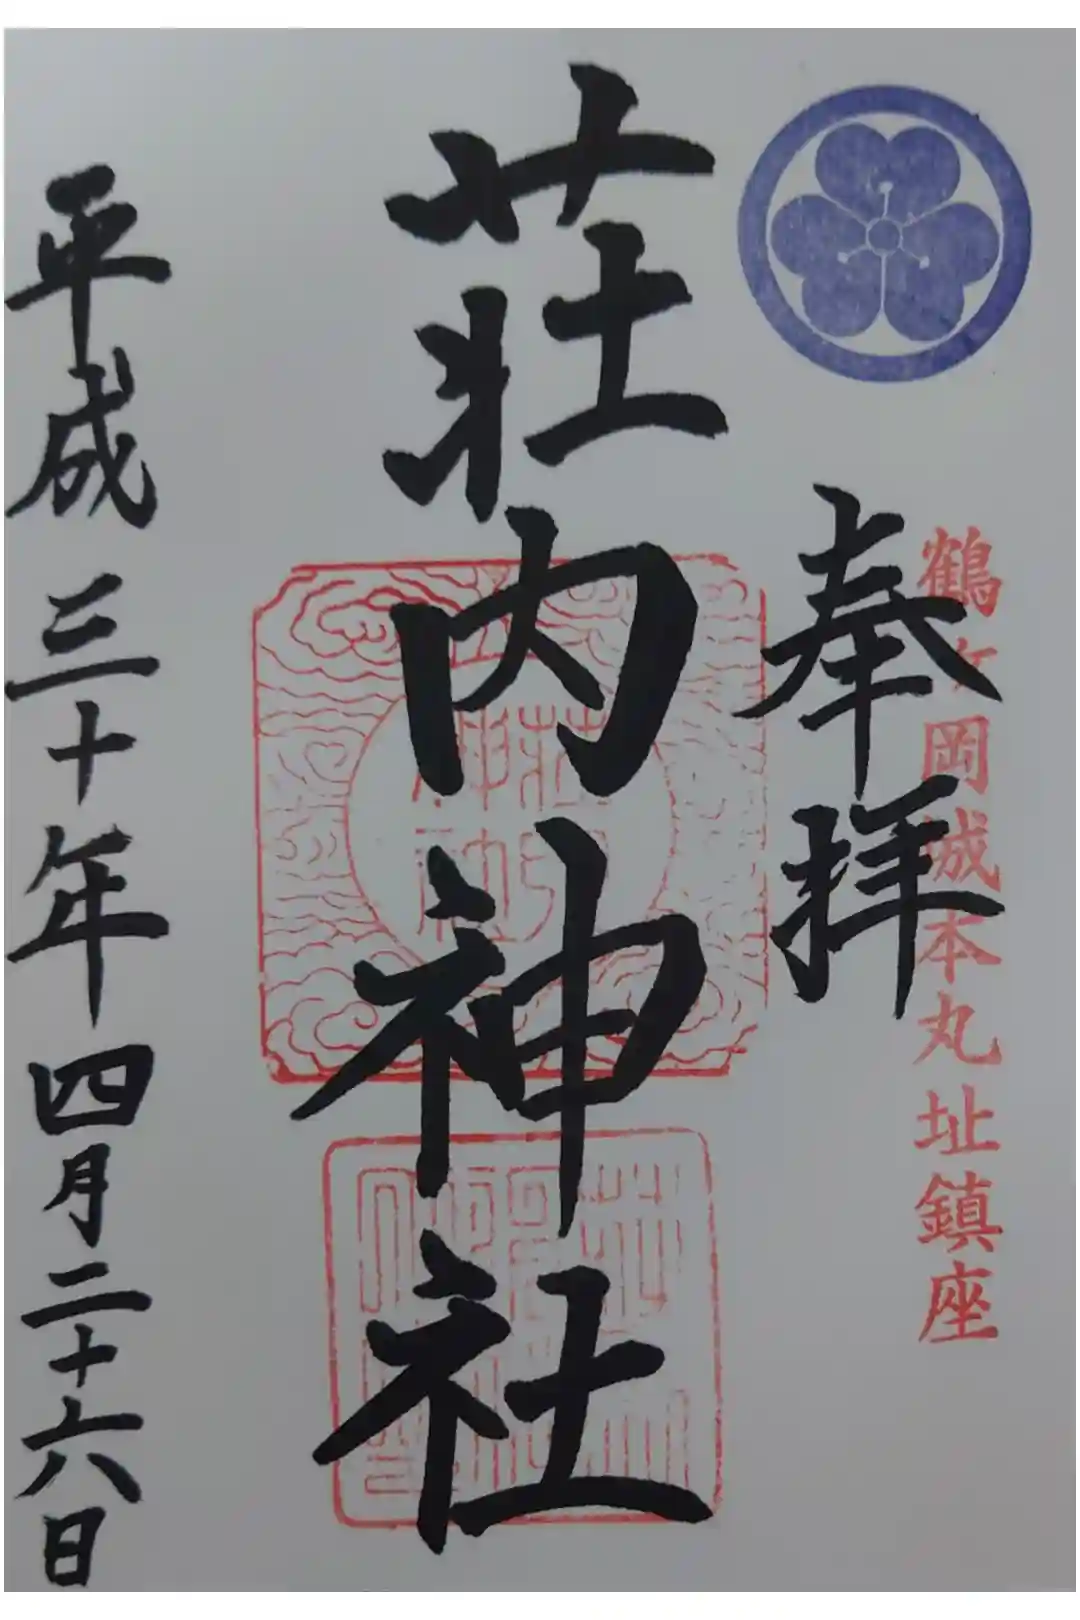 鶴ヶ岡城本丸址鎮座
奉拝
荘内神社
荘内神社
平成三十年四月二十六日